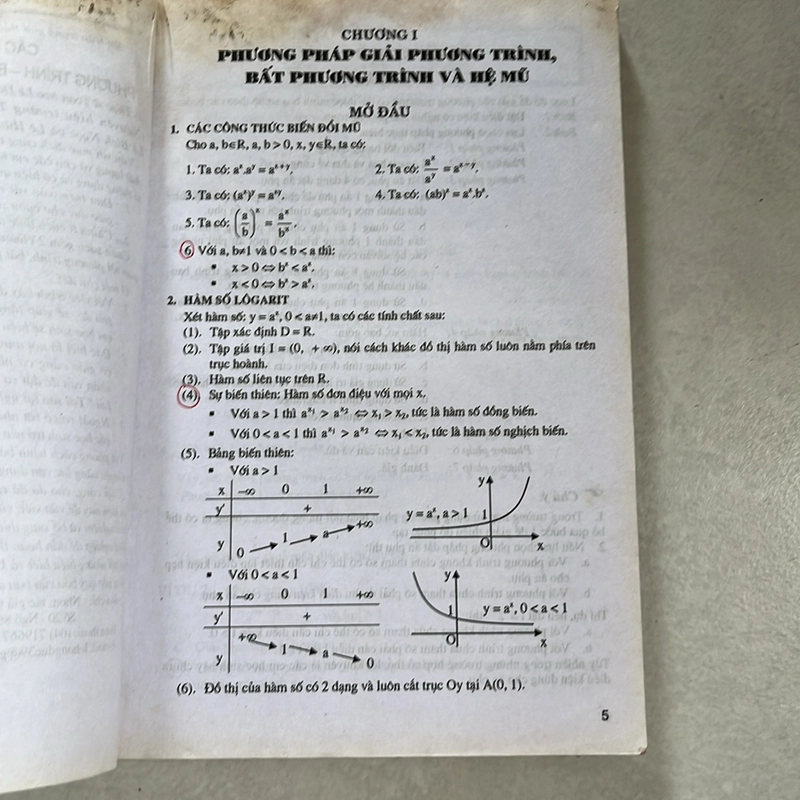 CHƯƠNG I
PHƯƠNG PHÁP GIẢI PHƯƠNG TRÌNH,
BẤT PHƯƠNG TRÌNH VÀ HỆ MŨ
MỞ ĐẦU
1. CÁC CÔNG THỨC BIẾN ĐỔI MŨ
Cho a, b∈R, a, b > 0, x, y∈R, ta có:
1. Ta có: aˣ.aʸ = aˣ⁺ʸ. 2. Ta có: aˣ/aʸ = aˣ⁻ʸ.
3. Ta có: (aˣ)ʸ = aˣʸ. 4. Ta có: (ab)ˣ = aˣ.bˣ.
5. Ta có: (a/b)ˣ = aˣ/bˣ.
6. Với a, b≠1 và 0 < b < a thì:
▪ x > 0 ⇔ bˣ < aˣ.
▪ x < 0 ⇔ bˣ > aˣ.
2. HÀM SỐ LÔGARIT
Xét hàm số: y = aˣ, 0 < a≠1, ta có các tính chất sau:
(1). Tập xác định D = R.
(2). Tập giá trị I = (0, + ∞), nói cách khác đồ thị hàm số luôn nằm phía trên
trục hoành.
(3). Hàm số liên tục trên R.
(4). Sự biến thiên: Hàm số đơn điệu với mọi x.
▪ Với a > 1 thì aˣ¹ > aˣ² ⇔ x₁ > x₂, tức là hàm số đồng biến.
▪ Với 0 < a < 1 thì aˣ¹ > aˣ² ⇔ x₁ < x₂, tức là hàm số nghịch biến.
(5). Bảng biến thiên:
▪ Với a > 1
x −∞ 0 1 +∞
y' +
y 0 1 a +∞
y
y = aˣ, a > 1
1
O
x
▪ Với 0 < a < 1
x −∞ 0 1 +∞
y' +
y +∞ 1 a 0
y
1
y = aˣ, 0 < a < 1
O
x
(6). Đồ thị của hàm số có 2 dạng và luôn cắt trục Oy tại A(0, 1).
5